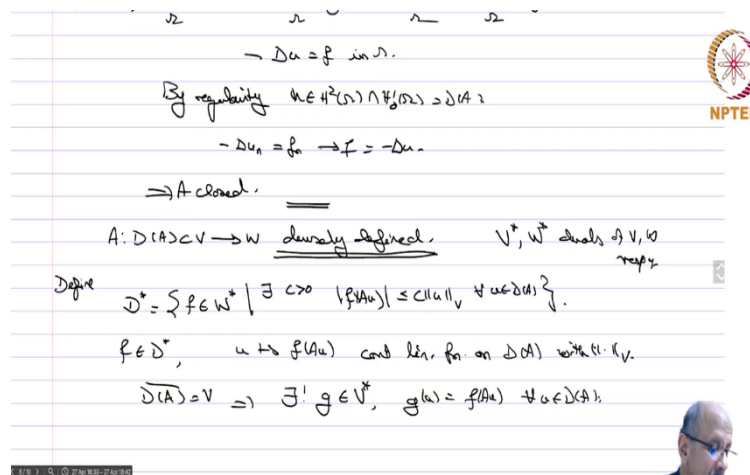 Ω Ω Ω Ω
- Δu = f in Ω.
By regularity u ∈ H²(Ω) ∩ H₀¹(Ω) = D(A).
- Δuₙ = fₙ → f = -Δu.
⇒ A closed.
A: D(A) ⊂ V → W densely defined. V*, W* duals of V, W
resp.
Define
D* = {f ∈ W* | ∃ c>0 |f(Au)| ≤ c||u||_V ∀ u ∈ D(A)}.
f ∈ D*, u ↦ f(Au) cont lin. fn. on D(A) with ||.||_V.
\overline{D(A)} = V ⇒ ∃! g ∈ V*, g(u) = f(Au) ∀ u ∈ D(A).
NPTEL